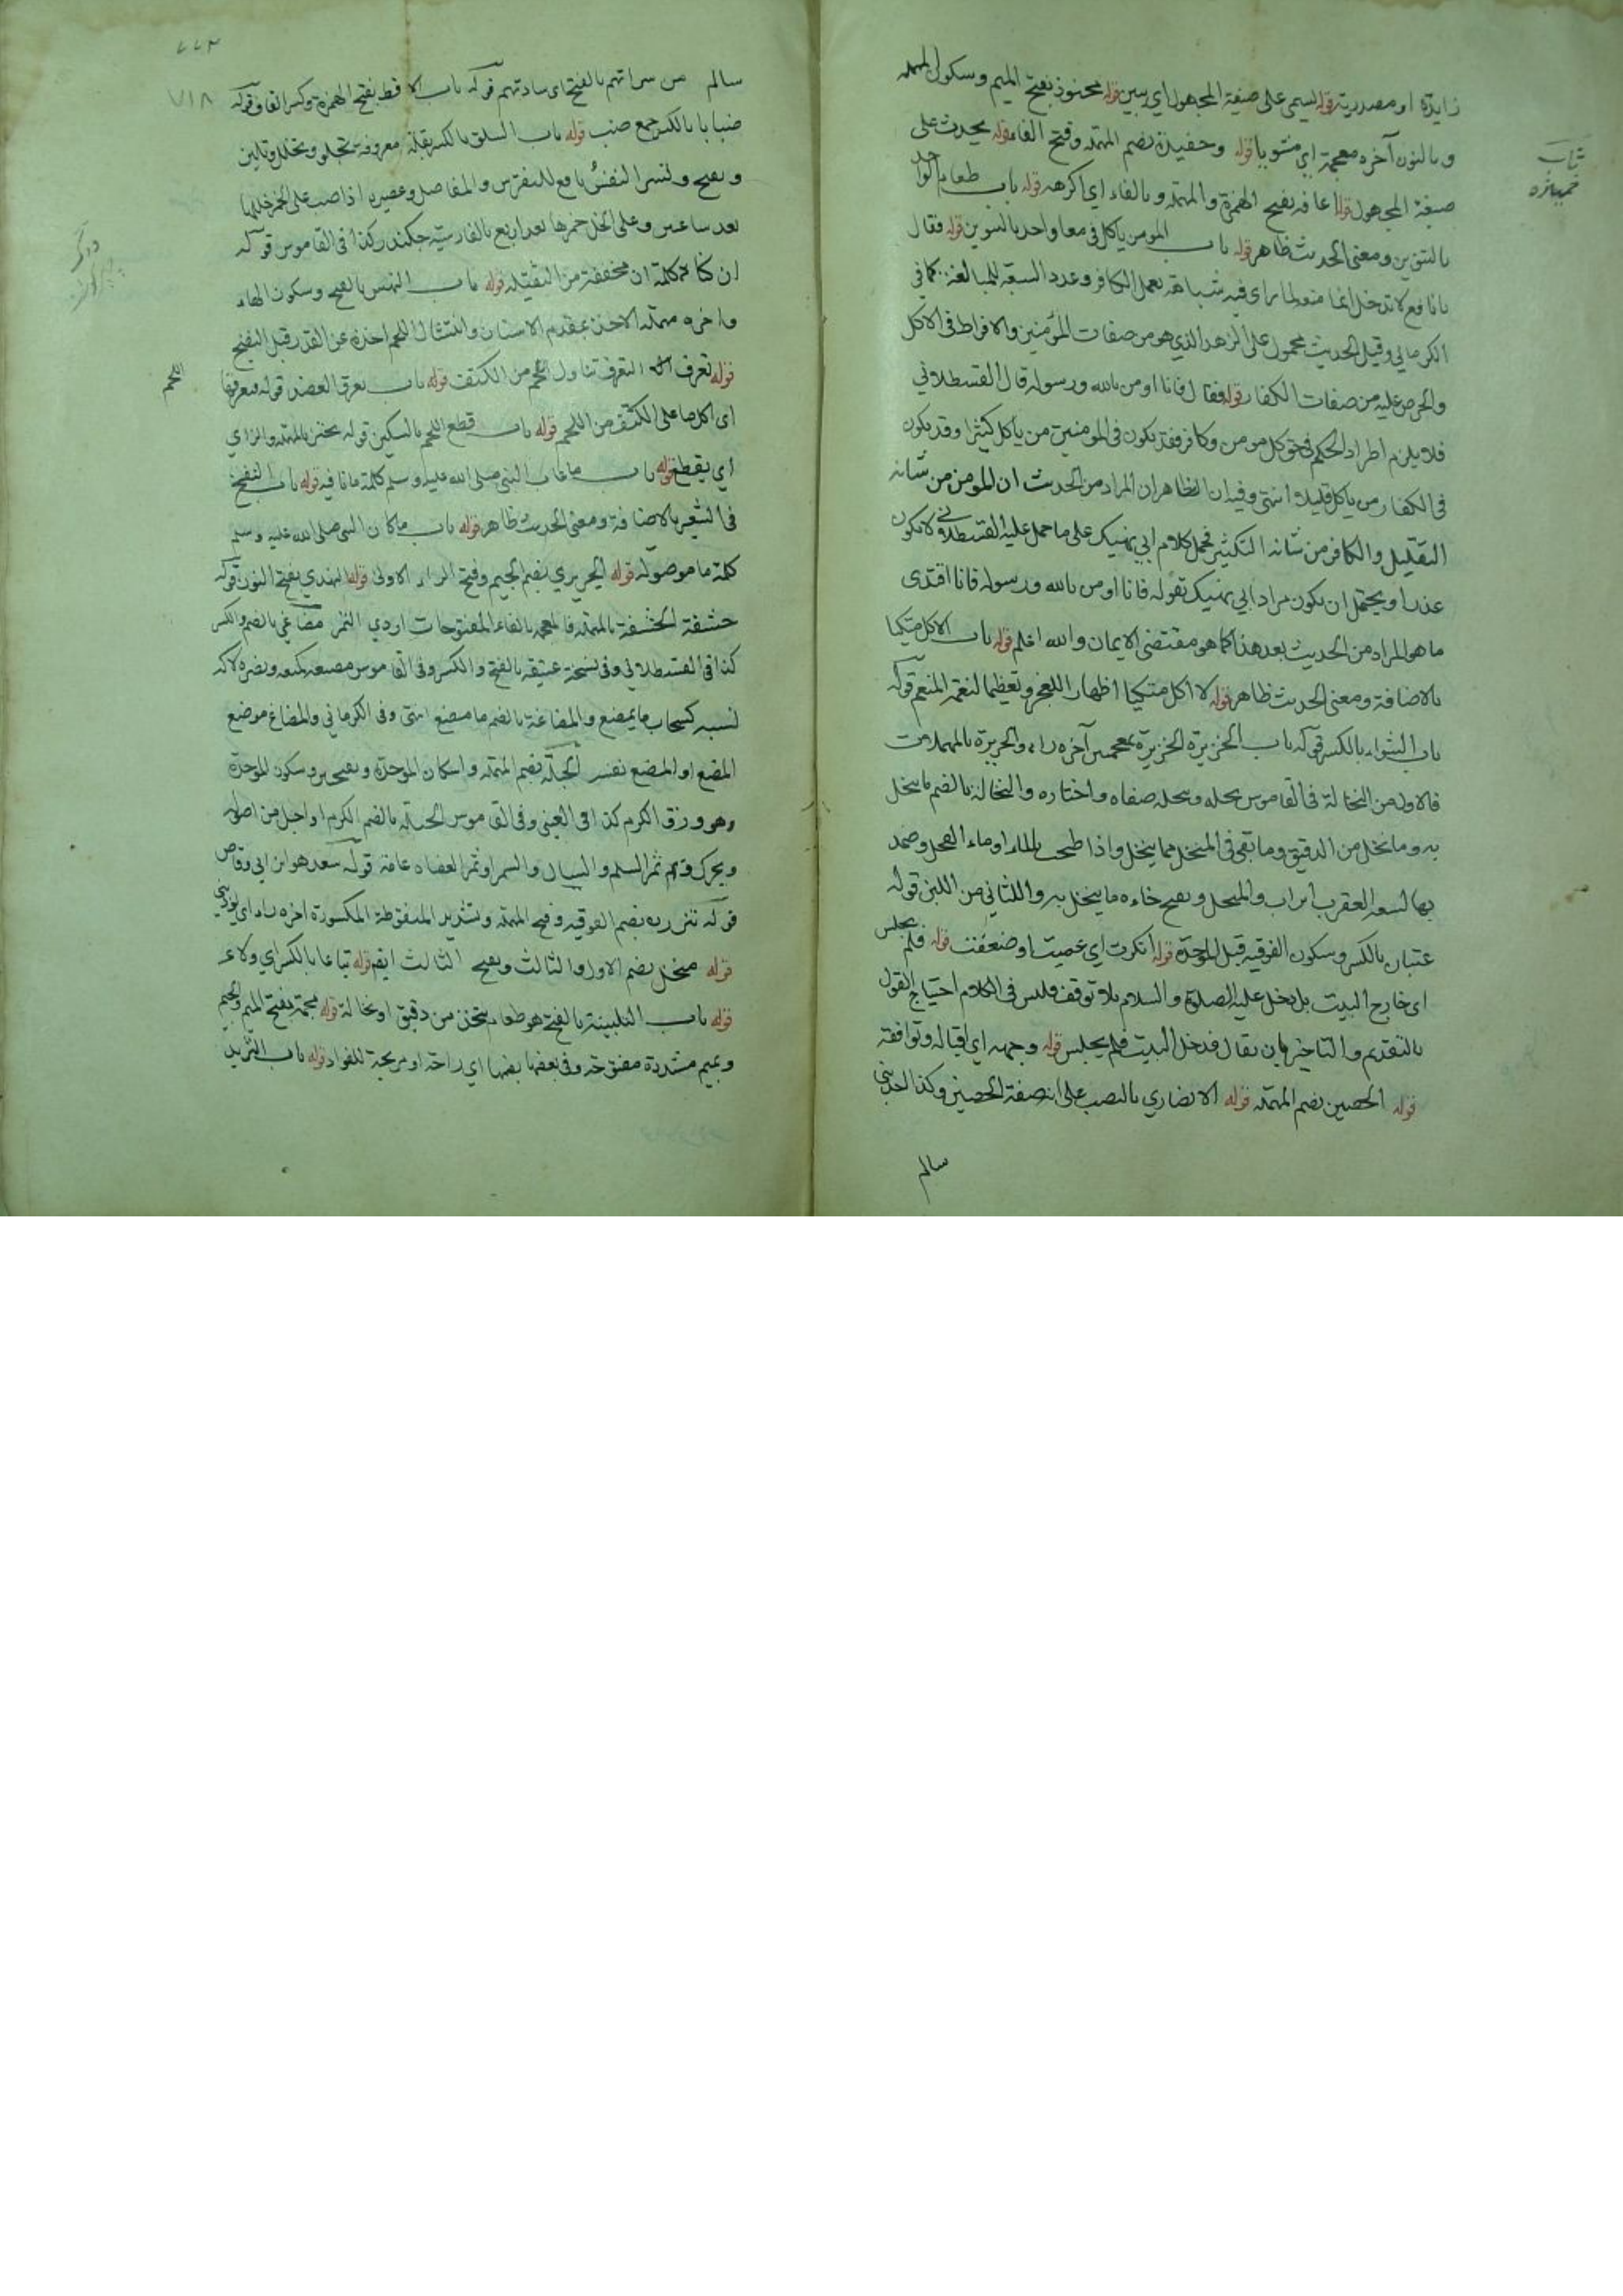 زايدة او مصدرية قوله ليسمي على صيغة المجهول اي يبين قوله محنوذ بفتح الميم وسكون المهملة
وبالنون آخره معجمة اي مشويا قوله وحفيدة بضم المهملة وفتح الفاء قوله يحدث على
صيغة المجهول قوله اعافه بفتح الهمزة والمهملة وبالفاء اي اكرهه قوله باب طعام الواحد
بالتنوين ومعنى الحديث ظاهر قوله باب المومن ياكل في معا واحد بالتنوين قوله فقال
يا نافع لا تدخل انما منعه لما راى فيه شباهة بعمل الكافر وعدد السبعة للمبالغة كما في
الكرماني وقيل الحديث محمول على الزهد الذي هو من صفات المؤمنين والافراط في الاكل
والحرص عليه من صفات الكفار قوله فقال فانا اومن بالله ورسوله قال القسطلاني
فلا يلزم اطراد الحكم في حق كل مومن وكافر فقد يكون في المومنين من ياكل كثيرا وقد يكون
في الكفار من ياكل قليلا انتهى وفيه ان الظاهر ان المراد من الحديث ان المومن من شانه
التقليل والكافر من شانه التكثير فحمل كلام ابي نهيك على ما حمل عليه القسطلاني لا يكون
عذرا ويحتمل ان يكون مراد ابي نهيك بقوله فانا اومن بالله ورسوله فانا اقتدى
ما هو المراد من الحديث بعد هذا كما هو مقتضى الايمان والله اعلم قوله باب الاكل متكيا
بالاضافة ومعنى الحديث ظاهر قوله لا اكل متكيا اظهارا للعجز وتعظيما لنعمة المنعم قوله
باب الشواء بالكسر قوله باب الخزيرة الخزيرة بمعجمتين آخره راء والحريرة بالمهملات
فالاول من النخالة في القاموس نخله وتنخله صفاه واختاره والنخالة بالضم ما ينخل
به وما نخل من الدقيق وما بقي في المنخل مما ينخل واذا طبخت بالماء او ماء الفجل وضمد
بها لسعة العقرب ابراء والمنخل وبفتح خاءه ما ينخل به والثاني من اللبن قوله
عتبان بالكسر وسكون الفوقية قبل الموحدة قوله انكرت اي عميت او ضعفت قوله فلم يجلس
اى خارج البيت بل دخل عليه الصلوة والسلام بلا توقف فليس في الكلام احتياج القول
بالتقديم والتاخير بان يقال فدخل البيت فلم يجلس قوله وجهه اي اقباله وتوافقه
قوله الحصين بضم المهملة قوله الانصاري بالنصب على انه صفة الحصين وكذا احد بني
سالم
سالم من سراتهم بالفتح اى ساداتهم قوله باب الاقط بفتح الهمزة وكسر القاف قوله
ضبابا بالكسر جمع ضب قوله باب السلق بالكسر بقلة معروفة تجلو وتحلل وتلين
وتفتح وتسر النفس نافع للنقرس والمفاصل وعصيره اذا صب على الخمر خللها
بعد ساعتين وعلى الخل خمرها بعد اربع بالفارسية جكندر كذا في القاموس قوله
ان كنا كلمة ان مخففة من الثقيلة قوله باب النهس بالفتح وسكون الهاء
واخره مهملة الاخذ بمقدم الاسنان وانتشال اللحم اخذه عن القدر قبل النضج
قوله تعرق التعرق تناول اللحم من الكتف قوله باب تعرق العضد قوله فتعرقها
اى اكل ما على الكتف من اللحم قوله باب قطع اللحم بالسكين قوله يحتز بالمهملة والزاي
اي يقطع قوله باب ما عاب النبي صلى الله عليه وسلم كلمة ما نافية قوله باب النفخ
في الشعير بالاضافة ومعنى الحديث ظاهر قوله باب ما كان النبي صلى الله عليه وسلم
كلمة ما موصولة قوله الجريري بضم الجيم وفتح الراء الاولى قوله النهدي بفتح النون قوله
حشفة الحشفة بالمهملة فالمعجمة بالفاء المفتوحات اردي التمر مضاغي بالضم والكسر
كذا في القسطلاني وفي نسخة عتيقة بالفتح والكسر وفي القاموس مضغه كمنعه ونصره لاكه
لسنه كسحاب ما يمضغ والمضاغة بالضم ما مضغ انتهى وفي الكرماني والمضاغ موضع
المضغ او المضغ نفسه الحبلة بضم المهملة واسكان الموحدة وبفتح وسكون الموحدة
وهو ورق الكرم كذا في العيني وفي القاموس الحبلة بالضم الكرم او اصل من اصوله
ويحرك وثمر السلم والسيال والسمر او ثمر العضاه عامة قوله سعد هو ابن ابي وقاص
قوله تعزرني بضم الفوقية وفتح المهملة وتشديد المنقوطة المكسورة اخره راء اى يؤدبني
قوله منخل بضم الاول والثالث وبفتح الثالث ايضا قوله تباعا بالكسر اي ولاء
قوله باب التلبينة بالفتح هو طعام يتخذ من دقيق او نخالة قوله مجمة بفتح الميم والجيم
وبميم مشددة مفتوحة وفي بعضها بضمها اي راحة او مريحة للفواد قوله باب الثريد
اللحم
٧١٨